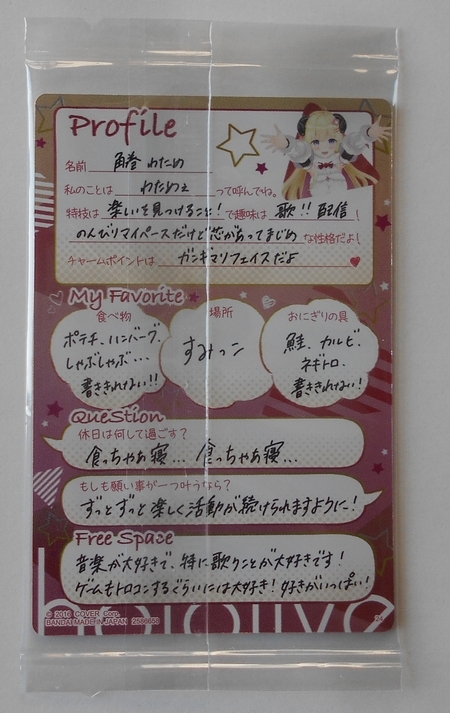 Profile
名前 角巻 わため
私のことは わためぇ って呼んでね。
特技は 楽しいを見つけること! で趣味は 歌!! 配信!
のんびりマイペースだけど芯があってまじめ な性格だよ!
チャームポイントは ガンギマリフェイスだよ
My Favorite
食べ物
ポテチ、ハンバーグ、
しゃぶしゃぶ...
書ききれない!!
場所
すみっこ
おにぎりの具
鮭、カルビ、
ネギトロ、
書ききれない!
QueStion
休日は何して過ごす?
食っちゃあ寝... 食っちゃあ寝...
もしも願い事が一つ叶うなら?
ずっとずっと楽しく活動が続けられますように!
Free Space
音楽が大好きで、特に歌うことが大好きです!
ゲームもトロコンするぐらいには大好き! 好きがいっぱい!
hololive
© 2016 COVER Corp.
BANDAI MADE IN JAPAN